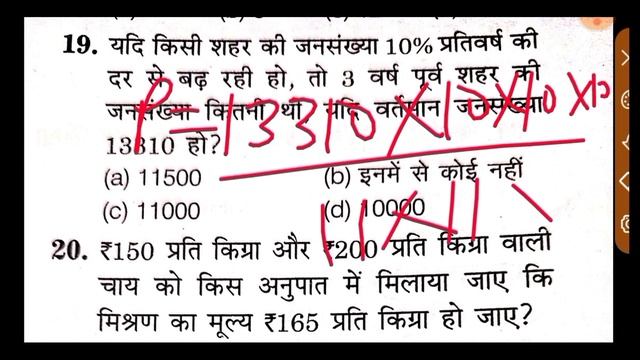 19. यदि किसी शहर की जनसंख्या 10% प्रतिवर्ष की
दर से बढ़ रही हो, तो 3 वर्ष पूर्व शहर की
जनसंख्या कितनी थी यदि वर्तमान जनसंख्या
13310 हो?
P = 13310 × 10 × 10 × 10
11 × 11 \
(a) 11500 (b) इनमें से कोई नहीं
(c) 11000 (d) 10000
20. ₹150 प्रति किग्रा और ₹200 प्रति किग्रा वाली
चाय को किस अनुपात में मिलाया जाए कि
मिश्रण का मूल्य ₹165 प्रति किग्रा हो जाए?